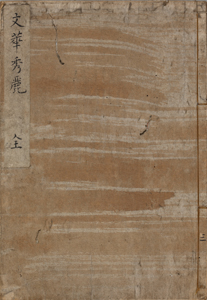 文華秀麗 全